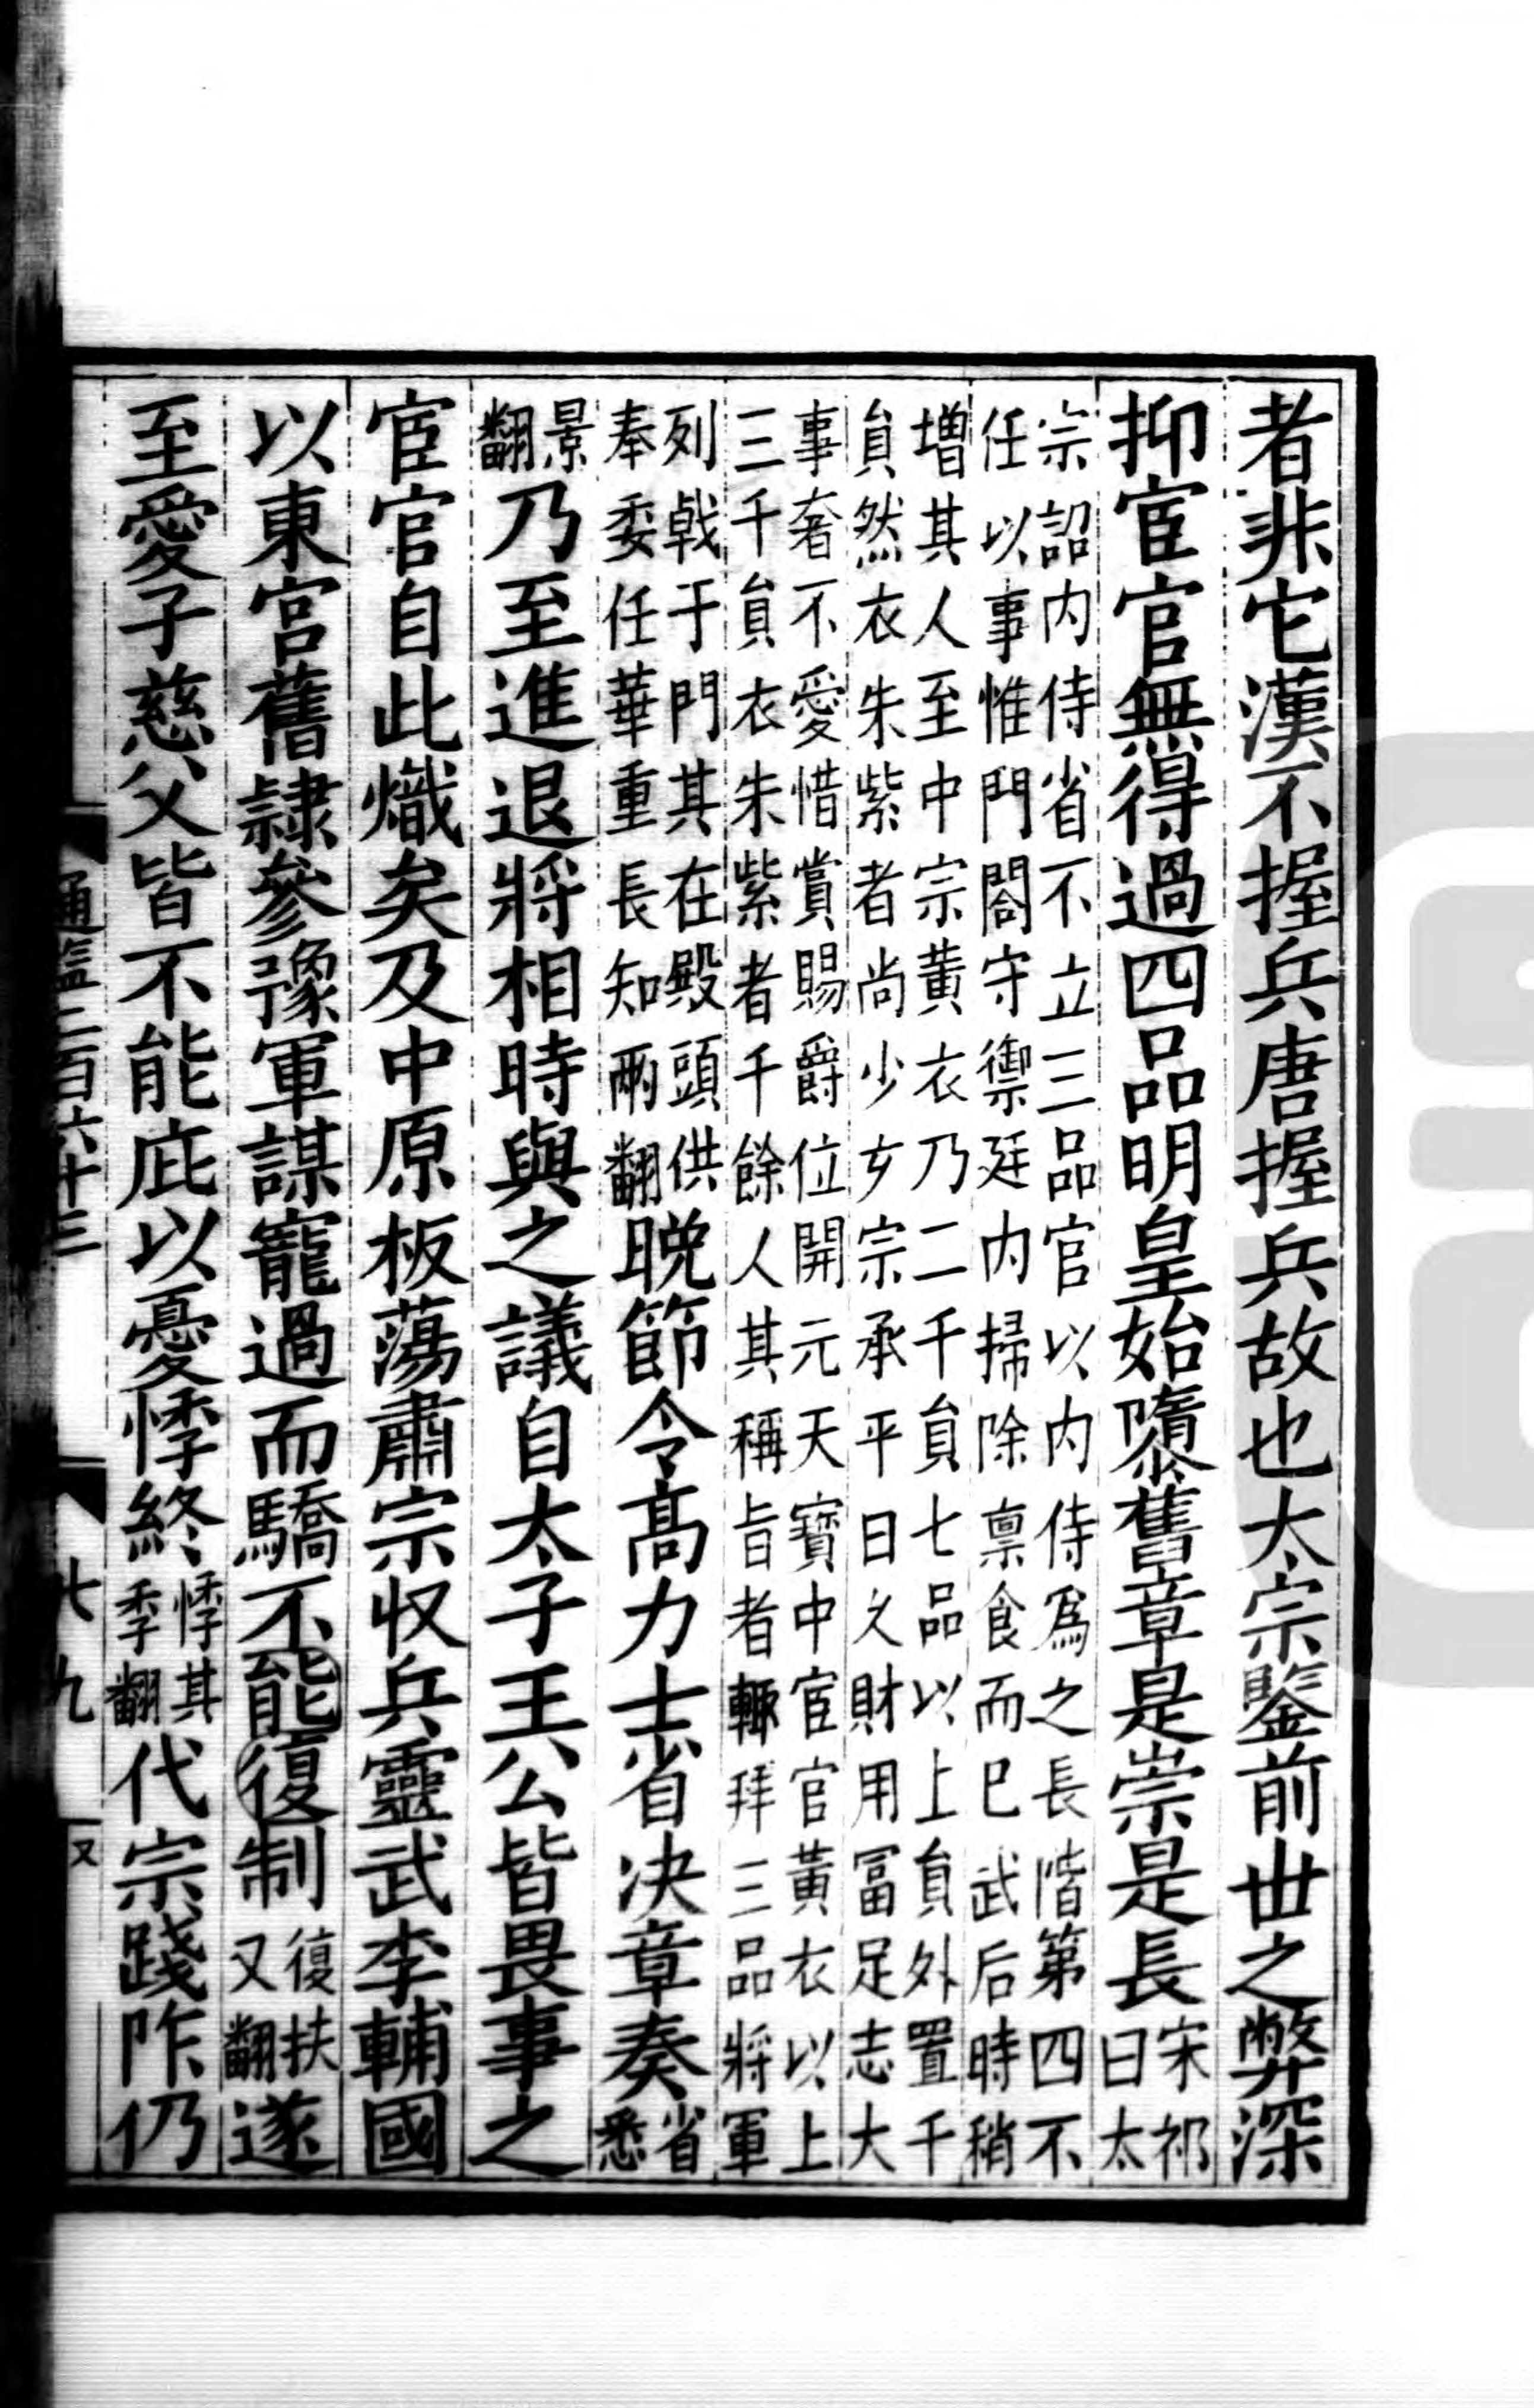 者非它漢不握兵唐握兵故也太宗鑒前世之弊深
抑宦官無得過四品明皇始隳舊章是崇是長宋祁曰太
宗詔内侍省不立三品官以内侍爲之長階第四不
任以事惟門閤守禦廷内掃除禀食而已武后時稍
增其人至中宗黄衣乃二千員七品以上員外置千
員然衣朱紫者尚少玄宗承平日久財用富足志大
事奢不愛惜賞賜爵位開元天寶中宦官黄衣以上
三千員衣朱紫者千餘人其稱旨者輒拜三品將軍
列戟于門其在殿頭供
奉委任華重長知兩翻晚節令高力士省決章奏省悉
景翻乃至進退將相時與之議自太子王公皆畏事之
宦官自此熾矣及中原板蕩肅宗收兵靈武李輔國
以東宮舊隷參豫軍謀寵過而驕不能復制復扶又翻遂
至愛子慈父皆不能庇以憂悸終悸其季翻代宗踐阼仍
通鑑二百六十三
七九
又